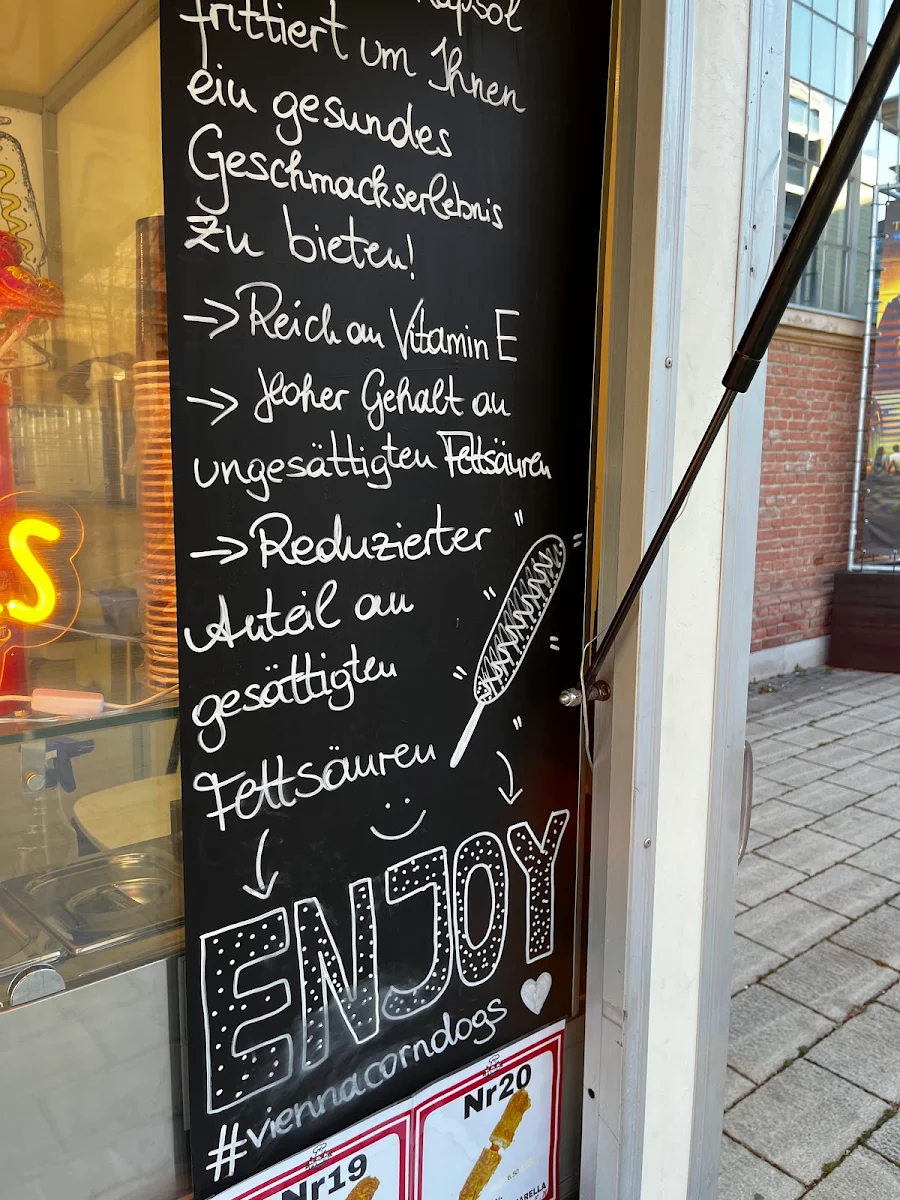 frittiert um Ihnen
ein gesundes
Geschmackserlebnis
zu bieten!
→ Reich an Vitamin E
→ Hoher Gehalt an
ungesättigten Fettsäuren
→ Reduzierter
Anteil an
gesättigten
Fettsäuren
ENJOY
#viennacorndogs
Nr20
Nr19